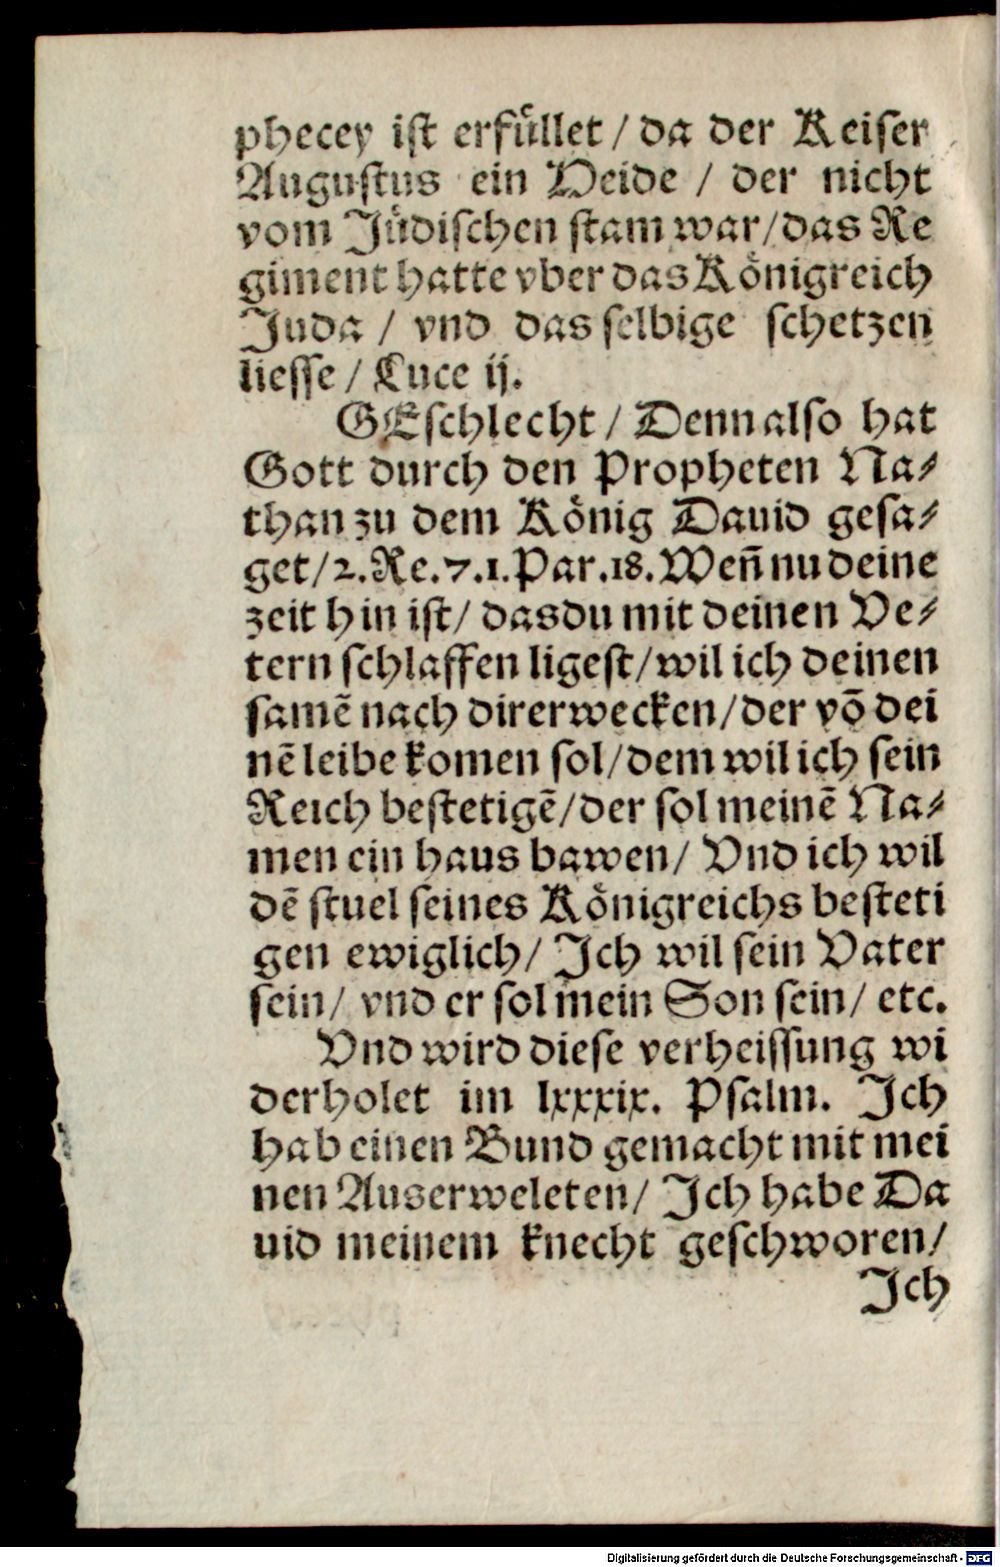 phecey ist erfüllet / da der Keiser
Augustus ein Heide / der nicht
vom Jüdischen stam war / das Re
giment hatte vber das Königreich
Juda / vnd das selbige schetzen
liesse / Luce ij.
GEschlecht / Denn also hat
Gott durch den Propheten Na⸗
than zu dem König Dauid gesa⸗
get / 2. Re. 7. 1. Par. 18. Weñ nu deine
zeit hin ist / das du mit deinen Ve⸗
tern schlaffen ligest / wil ich deinen
samē nach dir erwecken / der vō dei
nē leibe komen sol / dem wil ich sein
Reich bestetigē / der sol meinē Na⸗
men ein haus bawen / Vnd ich wil
dē stuel seines Königreichs besteti
gen ewiglich / Ich wil sein Vater
sein / vnd er sol mein Son sein / etc.
Vnd wird diese verheissung wi
derholet im lxxxix. Psalm. Ich
hab einen Bund gemacht mit mei
nen Auserweleten / Ich habe Da
uid meinem knecht geschworen /
Ich
Digitalisierung gefördert durch die Deutsche Forschungsgemeinschaft - DFG